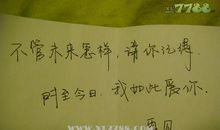 XL7788
不管未来怎样，请你记得
时至今日，我如此爱你.
www.XL7788.com